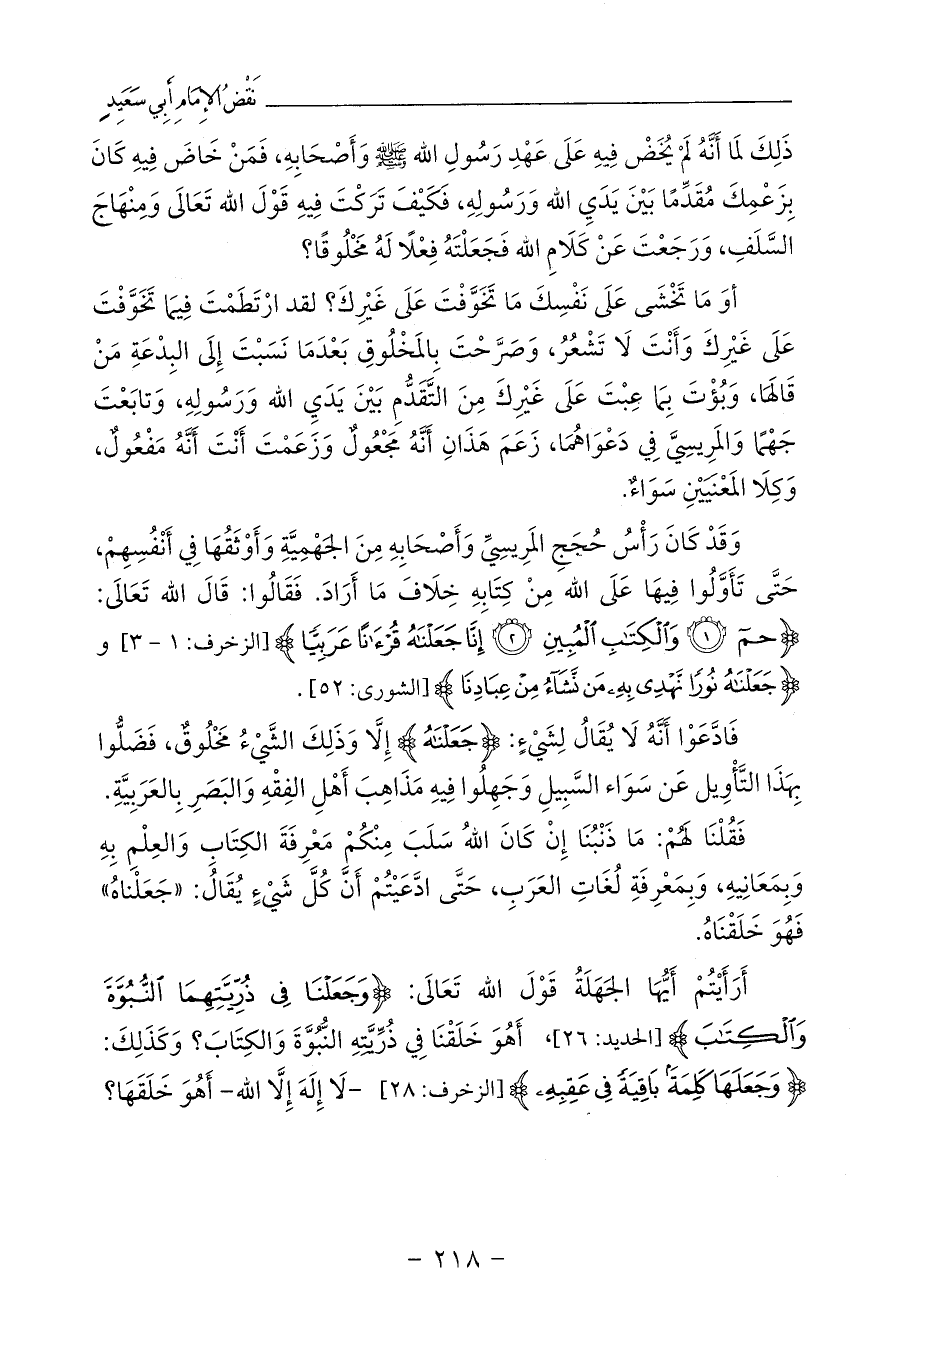 نَقْضُ الإِمَامِ أَبِي سَعَيدٍ
ذَلِكَ لمَا أَنَّهُ لَمْ يُخَضْ فِيهِ عَلَى عَهْدِ رَسُولِ الله ﷺ وَأَصْحَابِهِ، فَمَنْ خَاضَ فِيهِ كَانَ
بِزَعْمِكَ مُقَدِّمًا بَيْنَ يَدَيِ الله وَرَسُولِهِ، فَكَيْفَ تَرَكْتَ فِيهِ قَوْلَ الله تَعَالَى وَمِنْهَاجَ
السَّلَفِ، وَرَجَعْتَ عَنْ كَلَامِ الله فَجَعَلْتَهُ فِعْلًا لَهُ مَخْلُوقًا؟
أوَ مَا تَخْشَى عَلَى نَفْسِكَ مَا تَخَوَّفْتَ عَلَى غَيْرِكَ؟ لقد ارْتَطَمْتَ فِيمَا تَخَوَّفْتَ
عَلَى غَيْرِكَ وَأَنْتَ لَا تَشْعُرُ، وَصَرَّحْتَ بِالمَخْلُوقِ بَعْدَمَا نَسَبْتَ إِلَى البِدْعَةِ مَنْ
قَالَهَا، وَبُؤْتَ بِمَا عِبْتَ عَلَى غَيْرِكَ مِنَ التَّقَدُّمِ بَيْنَ يَدَيِ الله وَرَسُولِهِ، وَتابَعْتَ
جَهْمًا وَالمَرِيسِيَّ فِي دَعْوَاهُمَا، زَعَمَ هَذَانِ أَنَّهُ مَجْعُولٌ وَزَعَمْتَ أَنْتَ أَنَّهُ مَفْعُولٌ،
وَكِلَا المَعْنَيَيْنِ سَوَاءٌ.
وَقَدْ كَانَ رَأْسُ حُجَجِ المَرِيسِيِّ وَأَصْحَابِهِ مِنَ الجَهْمِيَّةِ وَأَوْثَقُهَا فِي أَنْفُسِهِمْ،
حَتَّى تَأَوَّلُوا فِيهَا عَلَى الله مِنْ كِتَابِهِ خِلَافَ مَا أَرَادَ. فَقَالُوا: قَالَ الله تَعَالَى:
﴿حمٓ ۝١ وَٱلْكِتَٰبِ ٱلْمُبِينِ ۝٢ إِنَّا جَعَلْنَٰهُ قُرْءَٰنًا عَرَبِيًّا﴾ [الزخرف: ١ - ٣] و
﴿جَعَلْنَٰهُ نُورًا نَّهْدِى بِهِۦ مَن نَّشَآءُ مِنْ عِبَادِنَا﴾ [الشورى: ٥٢].
فَادَّعَوْا أَنَّهُ لَا يُقَالُ لِشَيْءٍ: ﴿جَعَلْنَٰهُ﴾ إِلَّا وَذَلِكَ الشَّيْءُ مَخْلُوقٌ، فَضَلُّوا
بِهَذَا التَّأْوِيلِ عَن سَوَاء السَّبِيلِ وَجَهِلُوا فِيهِ مَذَاهِبَ أَهْلِ الفِقْهِ وَالبَصَرِ بِالعَرَبِيَّةِ.
فَقُلْنَا لَهُمْ: مَا ذَنْبُنَا إِنْ كَانَ اللهُ سَلَبَ مِنْكُمْ مَعْرِفَةَ الكِتَابِ وَالعِلْمِ بِهِ
وَبِمَعَانِيهِ، وَبِمَعْرِفَةِ لُغَاتِ العَرَبِ، حَتَّى ادَّعَيْتُمْ أَنَّ كُلَّ شَيْءٍ يُقَالُ: «جَعَلْناهُ»
فَهُوَ خَلَقْنَاهُ.
أَرَأَيْتُمْ أَيُّهَا الجَهَلَةُ قَوْلَ الله تَعَالَى: ﴿وَجَعَلْنَا فِى ذُرِّيَّتِهِمَا ٱلنُّبُوَّةَ
وَٱلْكِتَٰبَ﴾ [الحديد: ٢٦]، أَهُوَ خَلَقْنَا فِي ذُرِّيَّتِهِ النُّبُوَّةَ وَالكِتَابَ؟ وَكَذَلِكَ:
﴿وَجَعَلَهَا كَلِمَةًۢ بَاقِيَةً فِى عَقِبِهِۦ﴾ [الزخرف: ٢٨] -لَا إِلَهَ إِلَّا الله- أَهُوَ خَلَقَهَا؟
- ٢١٨ -